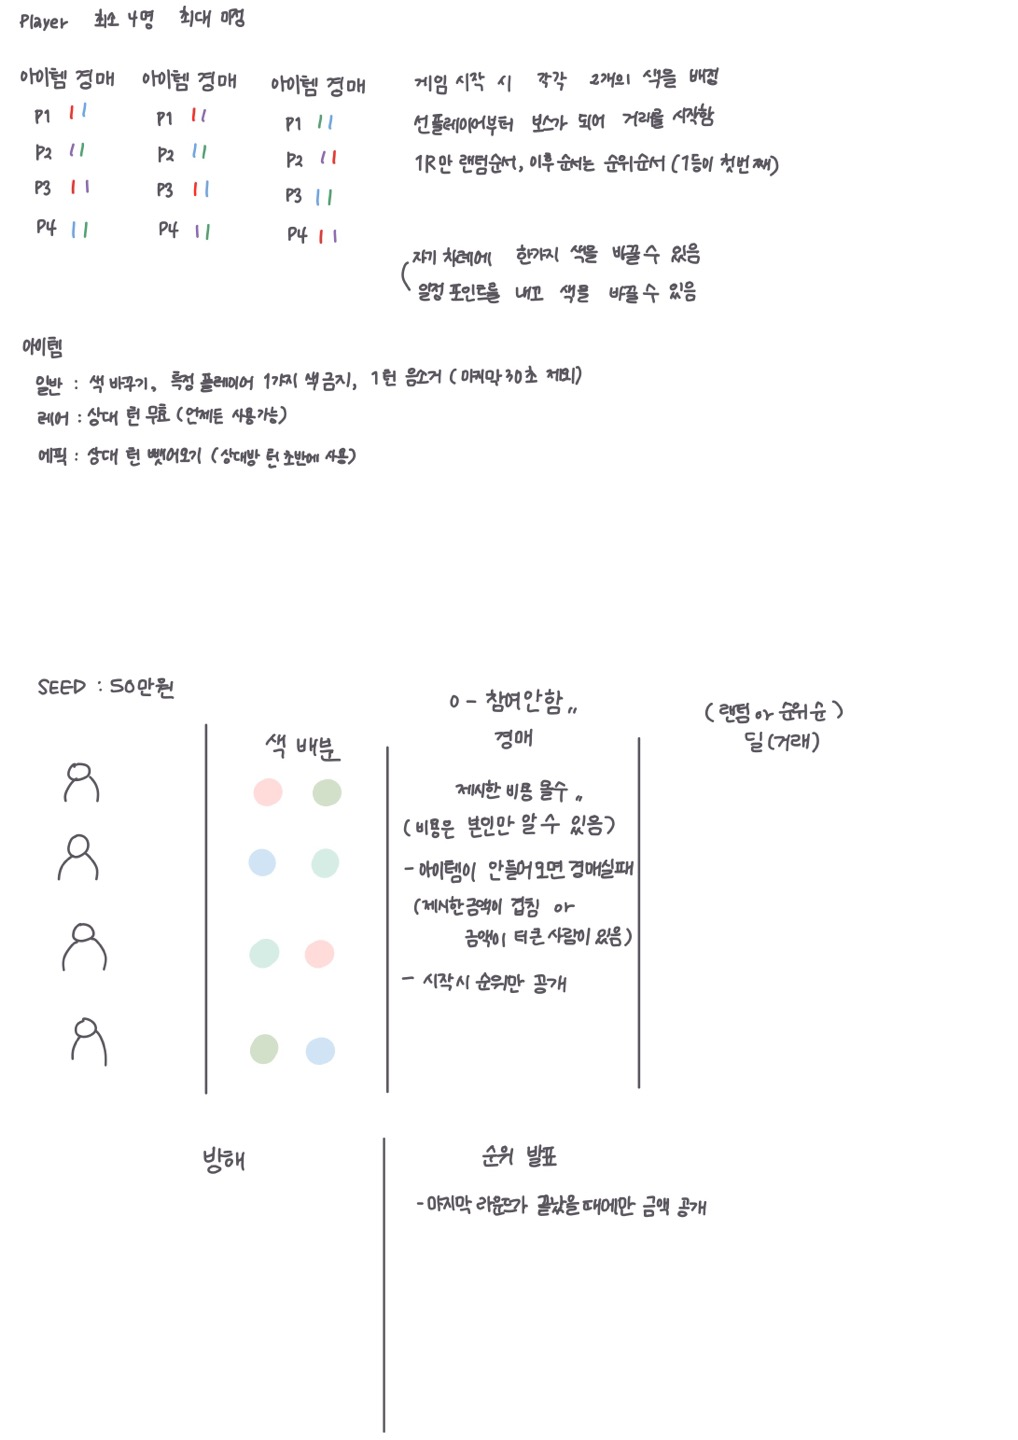 Player 최소 4명 최대 미정
아이템 경매 아이템 경매 아이템 경매
P1 P1 P1
P2 P2 P2
P3 P3 P3
P4 P4 P4
게임 시작 시 각각 2개의 색을 배정
선플레이어부터 보스가 되어 거래를 시작함
1R만 랜텀순서, 이후 순서는 순위순서 (1등이 첫번째)
자기 차례에 한가지 색을 바꿀 수 있음
일정 포인트를 내고 색을 바꿀 수 있음
아이템
일반 : 색 바꾸기, 특정 플레이어 1가지 색 금지, 1턴 음소거 (마지막 30초 제외)
레어 : 상대 턴 무효 (언제든 사용가능)
에픽 : 상대 턴 뺏어오기 (상대방 턴 초반에 사용)
SEED : 50만원
색 배분
0 - 참여안함 〃
경매
제시한 비용 몰수 〃
(비용은 본인만 알 수 있음)
- 아이템이 안들어오면 경매실패
(제시한금액이 겹침 or
금액이 더 큰 사람이 있음)
- 시작시 순위만 공개
(랜텀 or 순위순)
딜(거래)
방해
순위 발표
- 마지막 라운드가 끝났을때에만 금액 공개